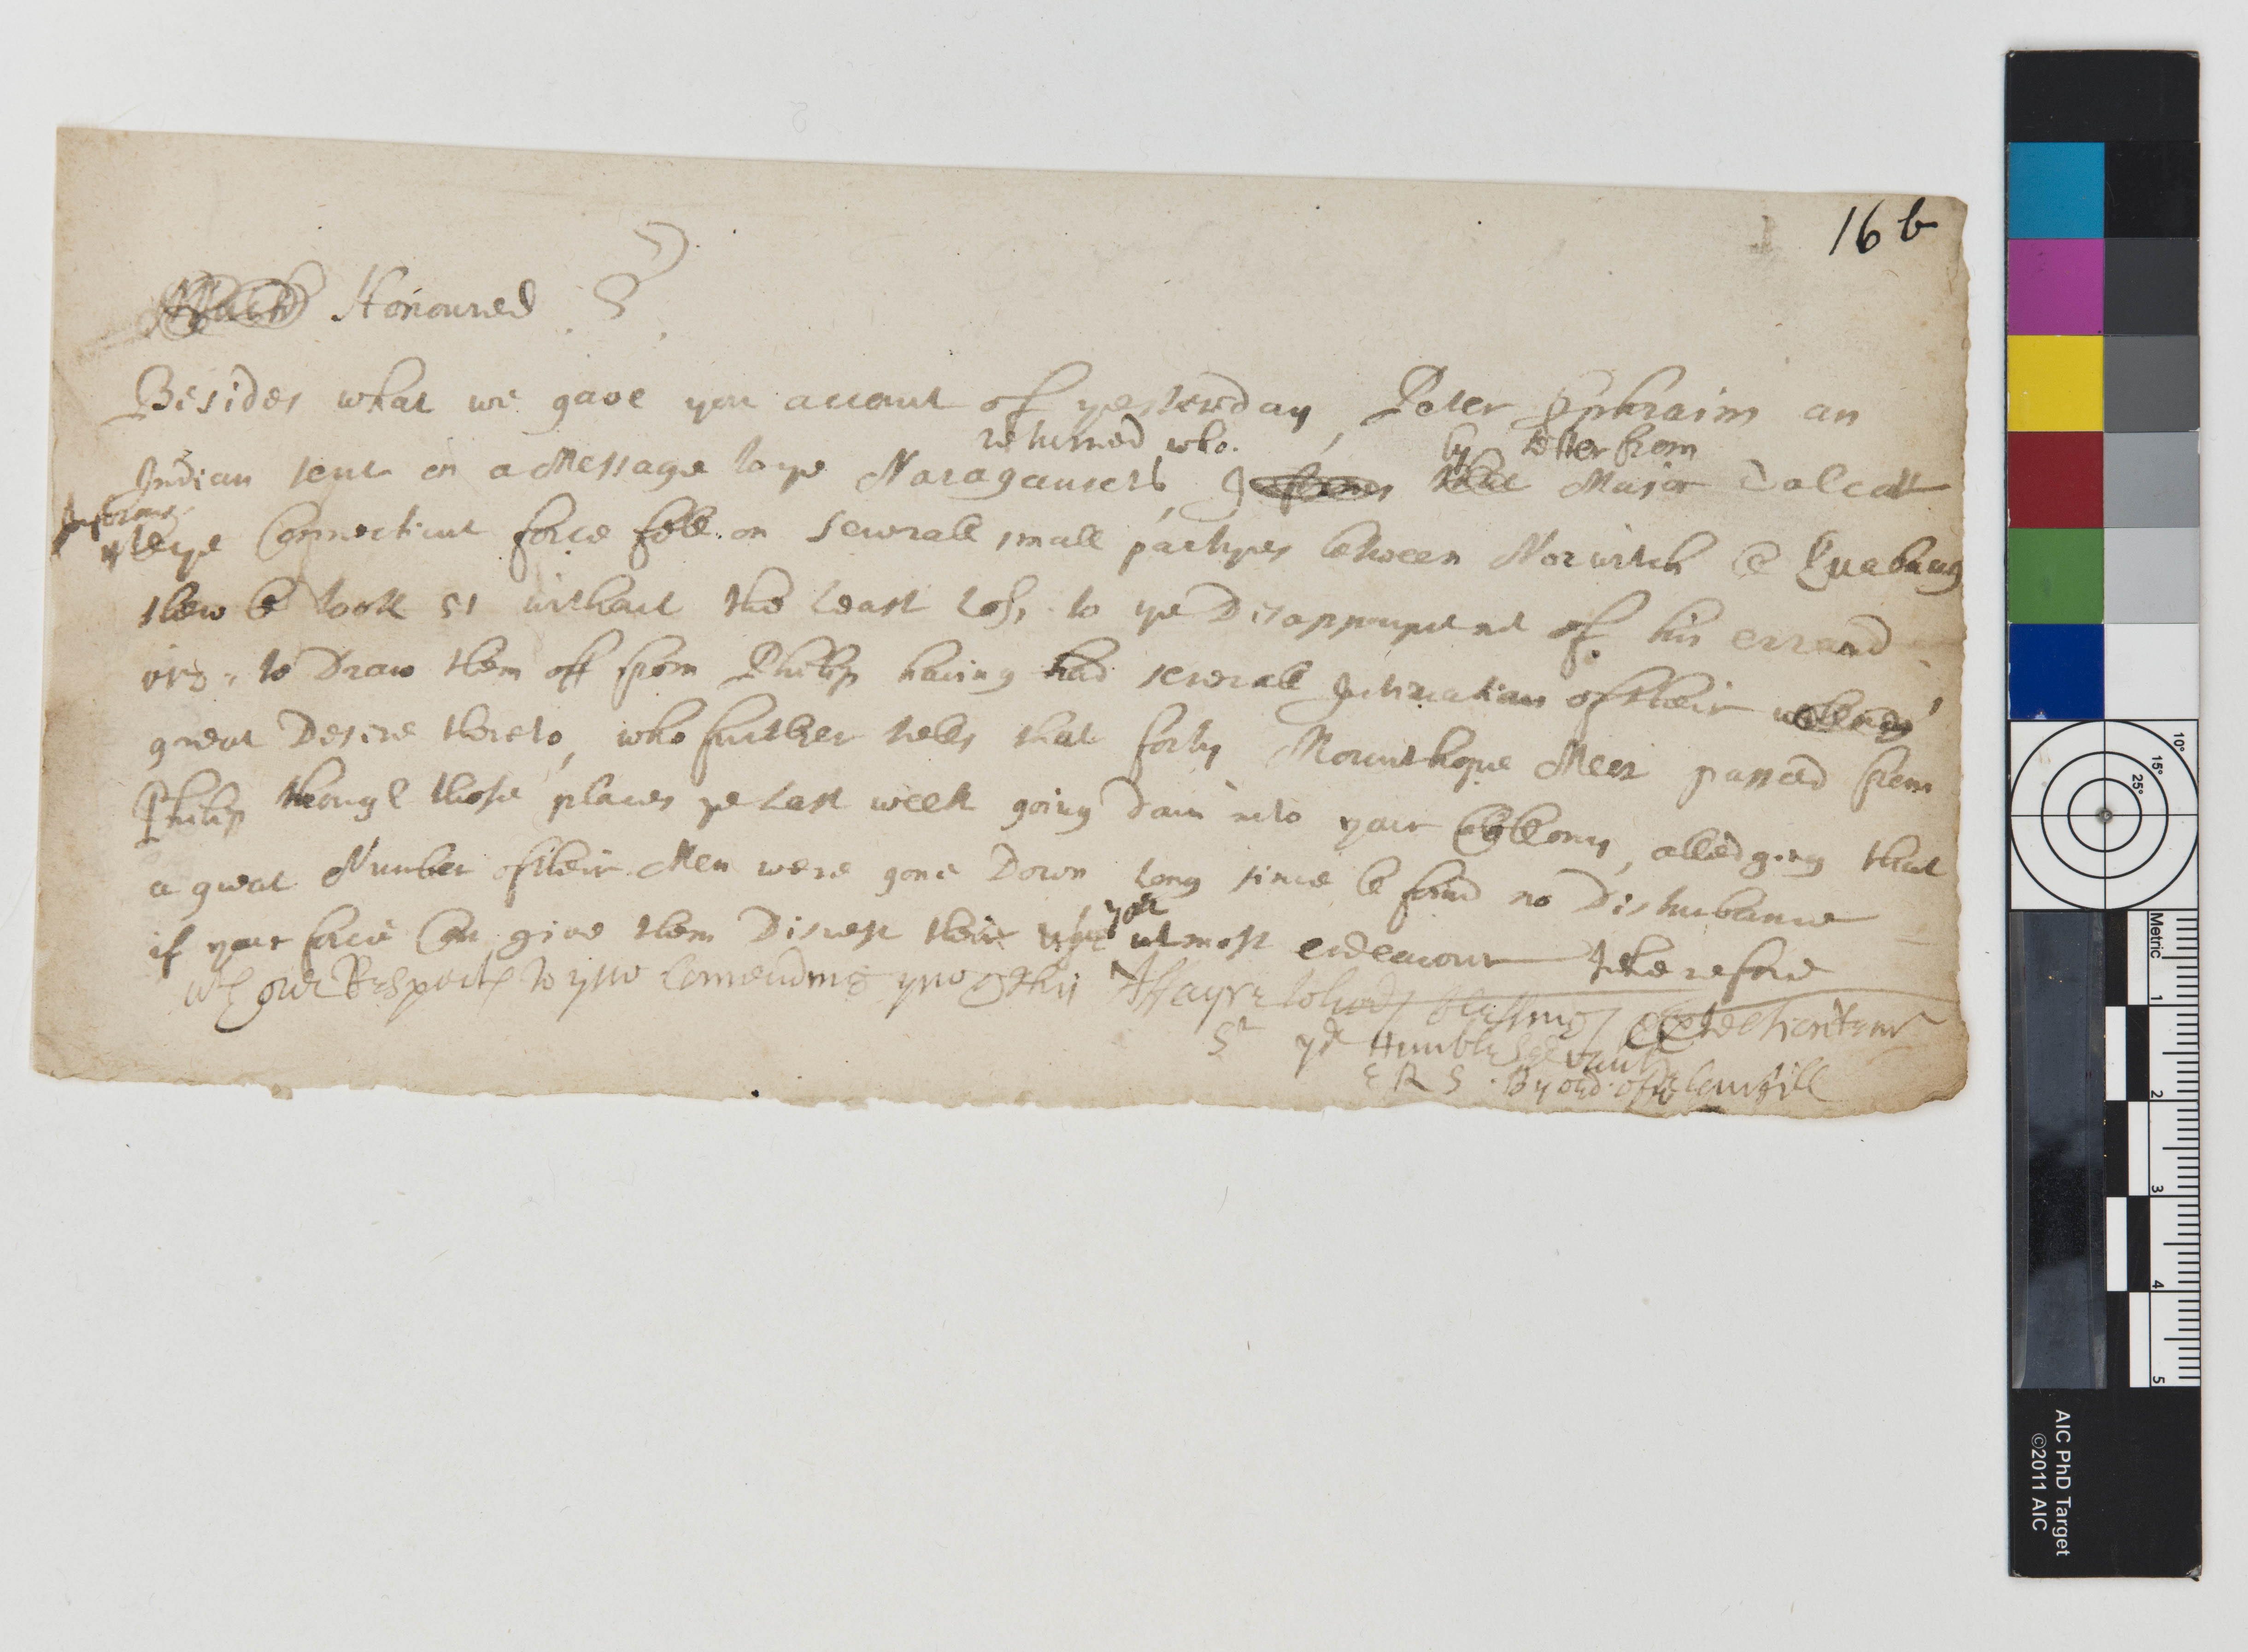 16 b
Much Honoured Sr
Besides what we gave you accout of yesterday, Peter Ephraim an
returned who. by letter from
Indian sent on a Message to ye Naragansets, Informes that Major Talcott
Informes
wth ye Connecticut force fell on severall small partyes between Norwitch & Quabaug
slew & took 51 without the least loss, to ye Disappoyntmt of his errand
viz. to Draw them off from Philip having had severall Intimations of their
great Desire thereto, who further tells that forty Mounthope Men passed from
Philip through those places ye last week going down into your Collony, alledging that
a great Number of their Men were gone Down long since & found no Disturbance
your
if your force Can give them Disrest utmost endeavour therefore
wth our Respects to you Comending you & this Affayre to Gods blessing &
Sr yor Humble Servant
E R S. By ord. of ye Councill
Metric 1 2 3 4 5
10° 15° 25°
AIC PhD Target
©2011 AIC